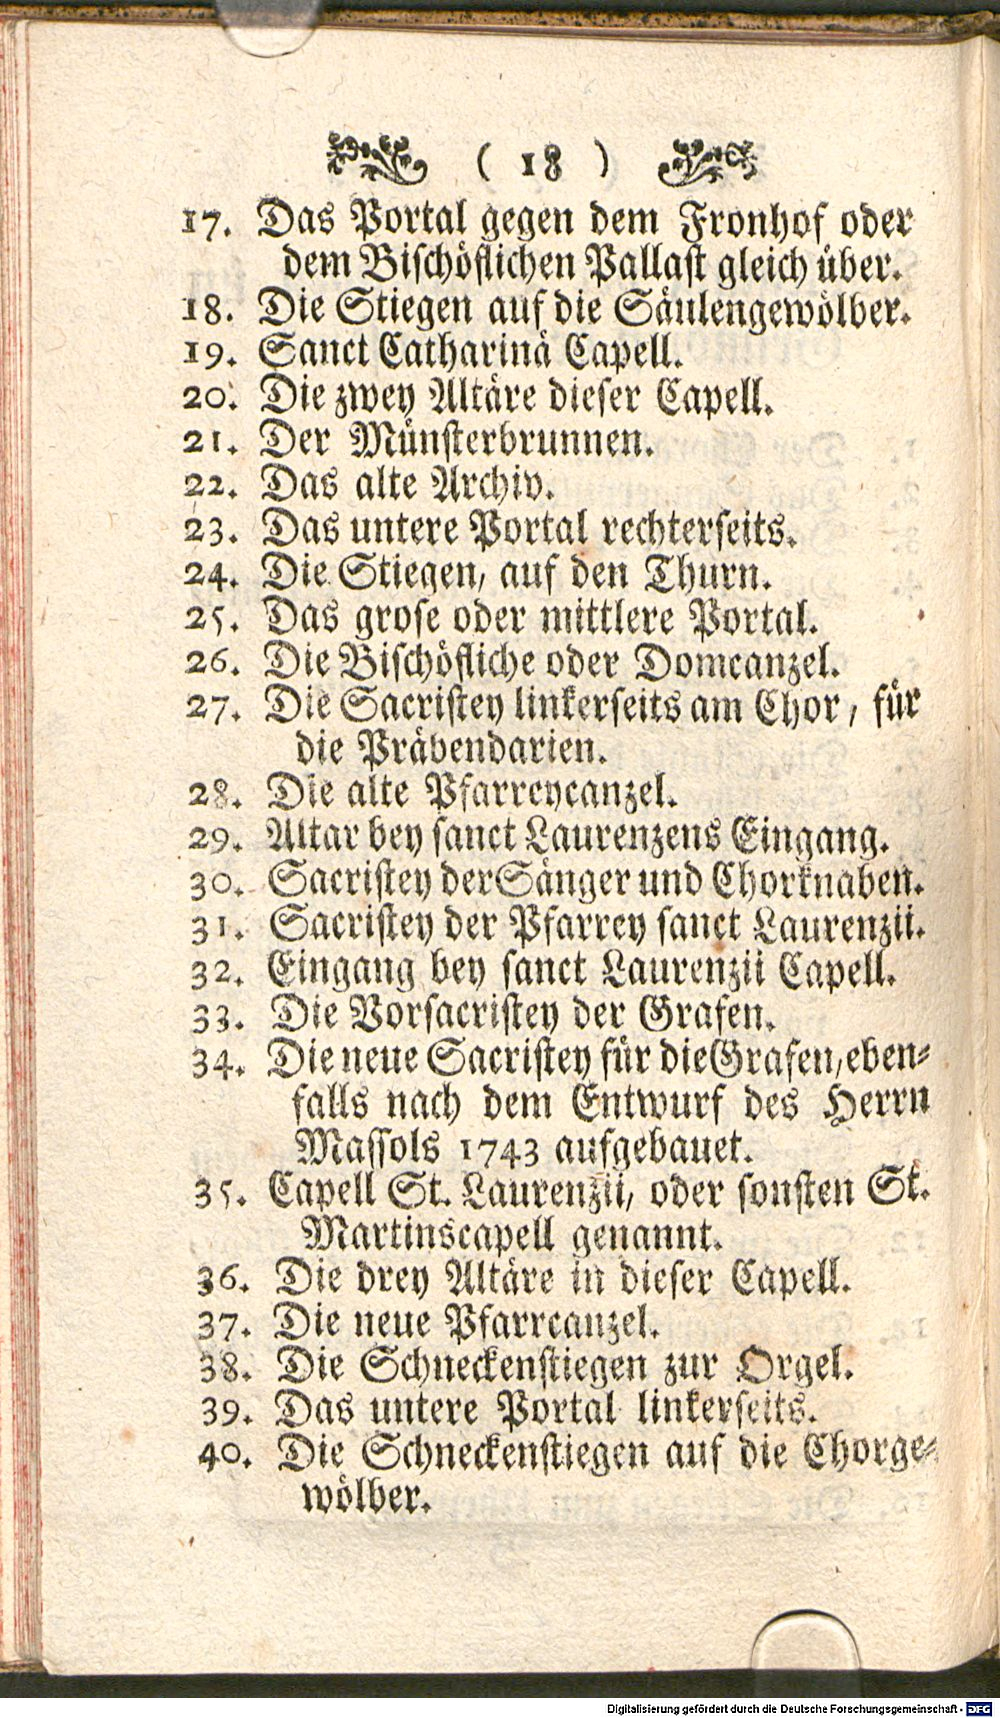 ( 18 )
17. Das Portal gegen dem Fronhof oder
dem Bischöflichen Pallast gleich über.
18. Die Stiegen auf die Säulengewölber.
19. Sanct Catharinä Capell.
20. Die zwey Altäre dieser Capell.
21. Der Münsterbrunnen.
22. Das alte Archiv.
23. Das untere Portal rechterseits.
24. Die Stiegen, auf den Thurn.
25. Das grose oder mittlere Portal.
26. Die Bischöfliche oder Domcanzel.
27. Die Sacristey linkerseits am Chor, für
die Präbendarien.
28. Die alte Pfarreycanzel.
29. Altar bey sanct Laurenzens Eingang.
30. Sacristey der Sänger und Chorknaben.
31. Sacristey der Pfarrey sanct Laurenzii.
32. Eingang bey sanct Laurenzii Capell.
33. Die Vorsacristey der Grafen.
34. Die neue Sacristey für die Grafen, eben-
falls nach dem Entwurf des Herrn
Massols 1743 aufgebauet.
35. Capell St. Laurenzii, oder sonsten St.
Martinscapell genannt.
36. Die drey Altäre in dieser Capell.
37. Die neue Pfarrcanzel.
38. Die Schneckenstiegen zur Orgel.
39. Das untere Portal linkerseits.
40. Die Schneckenstiegen auf die Chorge-
wölber.
Digitalisierung gefördert durch die Deutsche Forschungsgemeinschaft - DFG